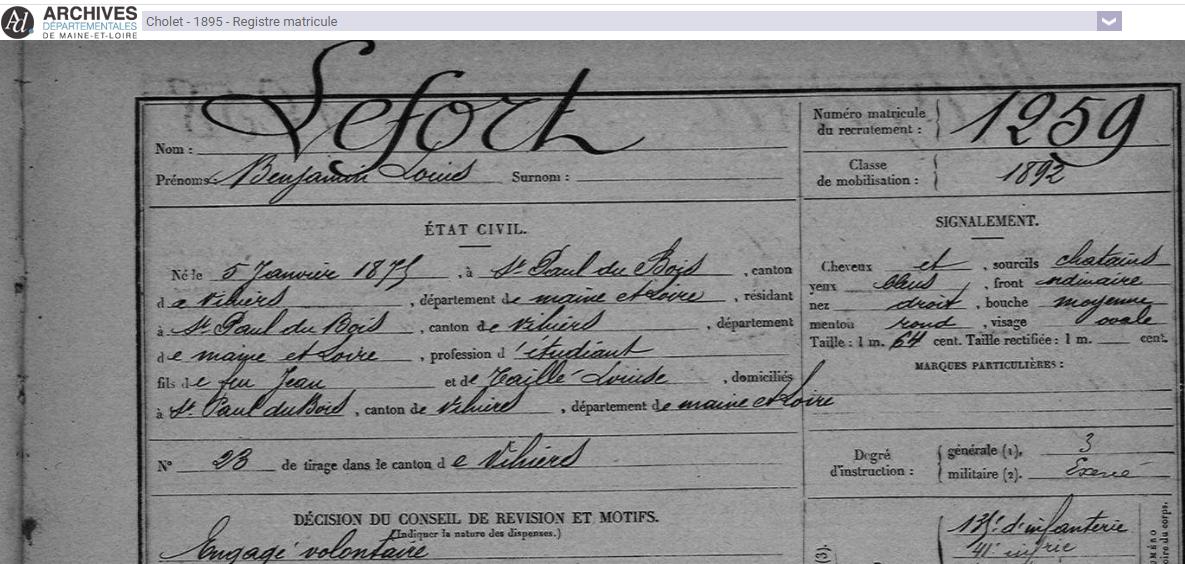 ARCHIVES
DÉPARTEMENTALES
DE MAINE-ET-LOIRE
Cholet - 1895 - Registre matricule
Nom : Lefort
Prénoms : Benjamin Louis Surnom :
Numéro matricule
du recrutement : 1259
Classe
de mobilisation : 1892
ÉTAT CIVIL.
Né le 5 Janvier 1875, à St Paul du Bois, canton
de Vihiers, département de maine et Loire, résidant
à St Paul du Bois, canton de Vihiers, département
de maine et Loire, profession d'étudiant
fils de feu Jean et de Taillé Louise, domiciliés
à St Paul du Bois, canton de Vihiers, département de maine et Loire
N° 23 de tirage dans le canton de Vihiers
DÉCISION DU CONSEIL DE REVISION ET MOTIFS.
(Indiquer la nature des dispenses.)
Engagé volontaire
SIGNALEMENT.
Cheveux et, sourcils chatains
yeux bleus, front ordinaire
nez droit, bouche moyenne
menton rond, visage ovale
Taille : 1 m. 64 cent. Taille rectifiée : 1 m. cent.
MARQUES PARTICULIÈRES :
Degré
d'instruction :
générale (1), 3
militaire (2). Exercé
135e d'infanterie
(3).
NUMÉRO